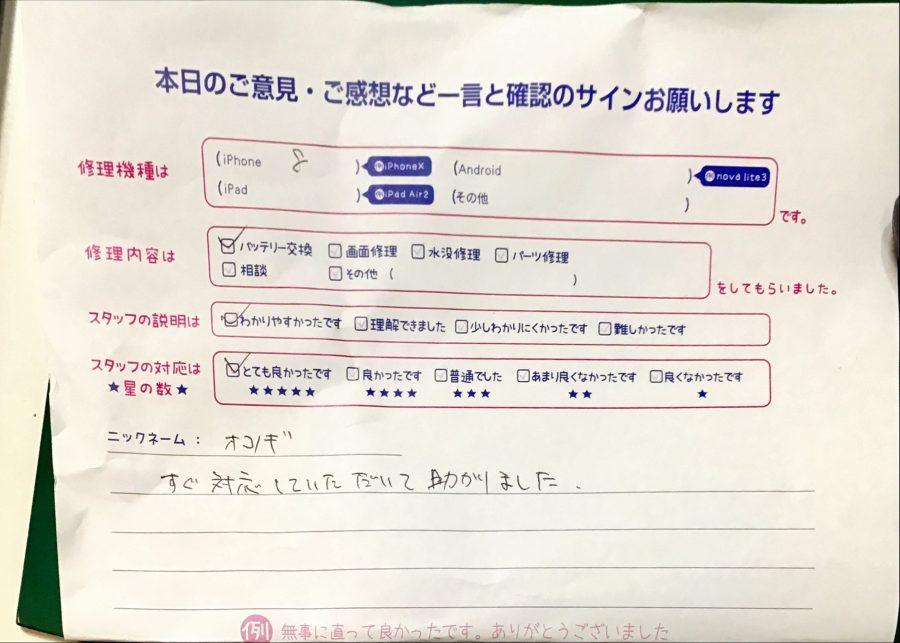 本日のご意見・ご感想など一言と確認のサインお願いします
修理機種は
(iPhone 8 ) 例iPhoneX (Android ) 例nova lite3
(iPad ) 例iPad Air2 (その他 )
です。
修理内容は
バッテリー交換 画面修理 水没修理 パーツ修理
相談 その他 ( )
をしてもらいました。
スタッフの説明は わかりやすかったです 理解できました 少しわかりにくかったです 難しかったです
スタッフの対応は とても良かったです 良かったです 普通でした あまり良くなかったです 良くなかったです
★星の数★ ★★★★★ ★★★★ ★★★ ★★ ★
ニックネーム: オコノギ
すぐ対応していただいて助かりました.
例 無事に直って良かったです。ありがとうございました